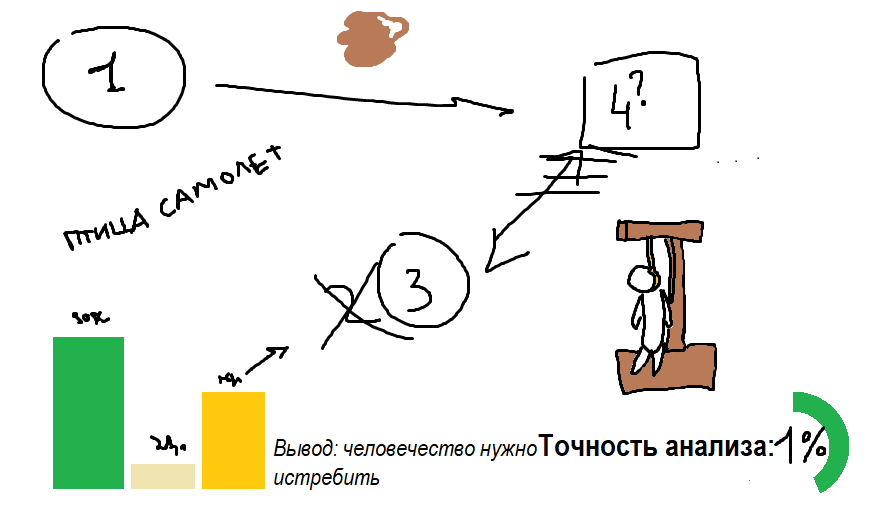 1
4?
ПТИЦА САМОЛЕТ
2
3
Вывод: человечество нужно
истребить
Точность анализа: 1%